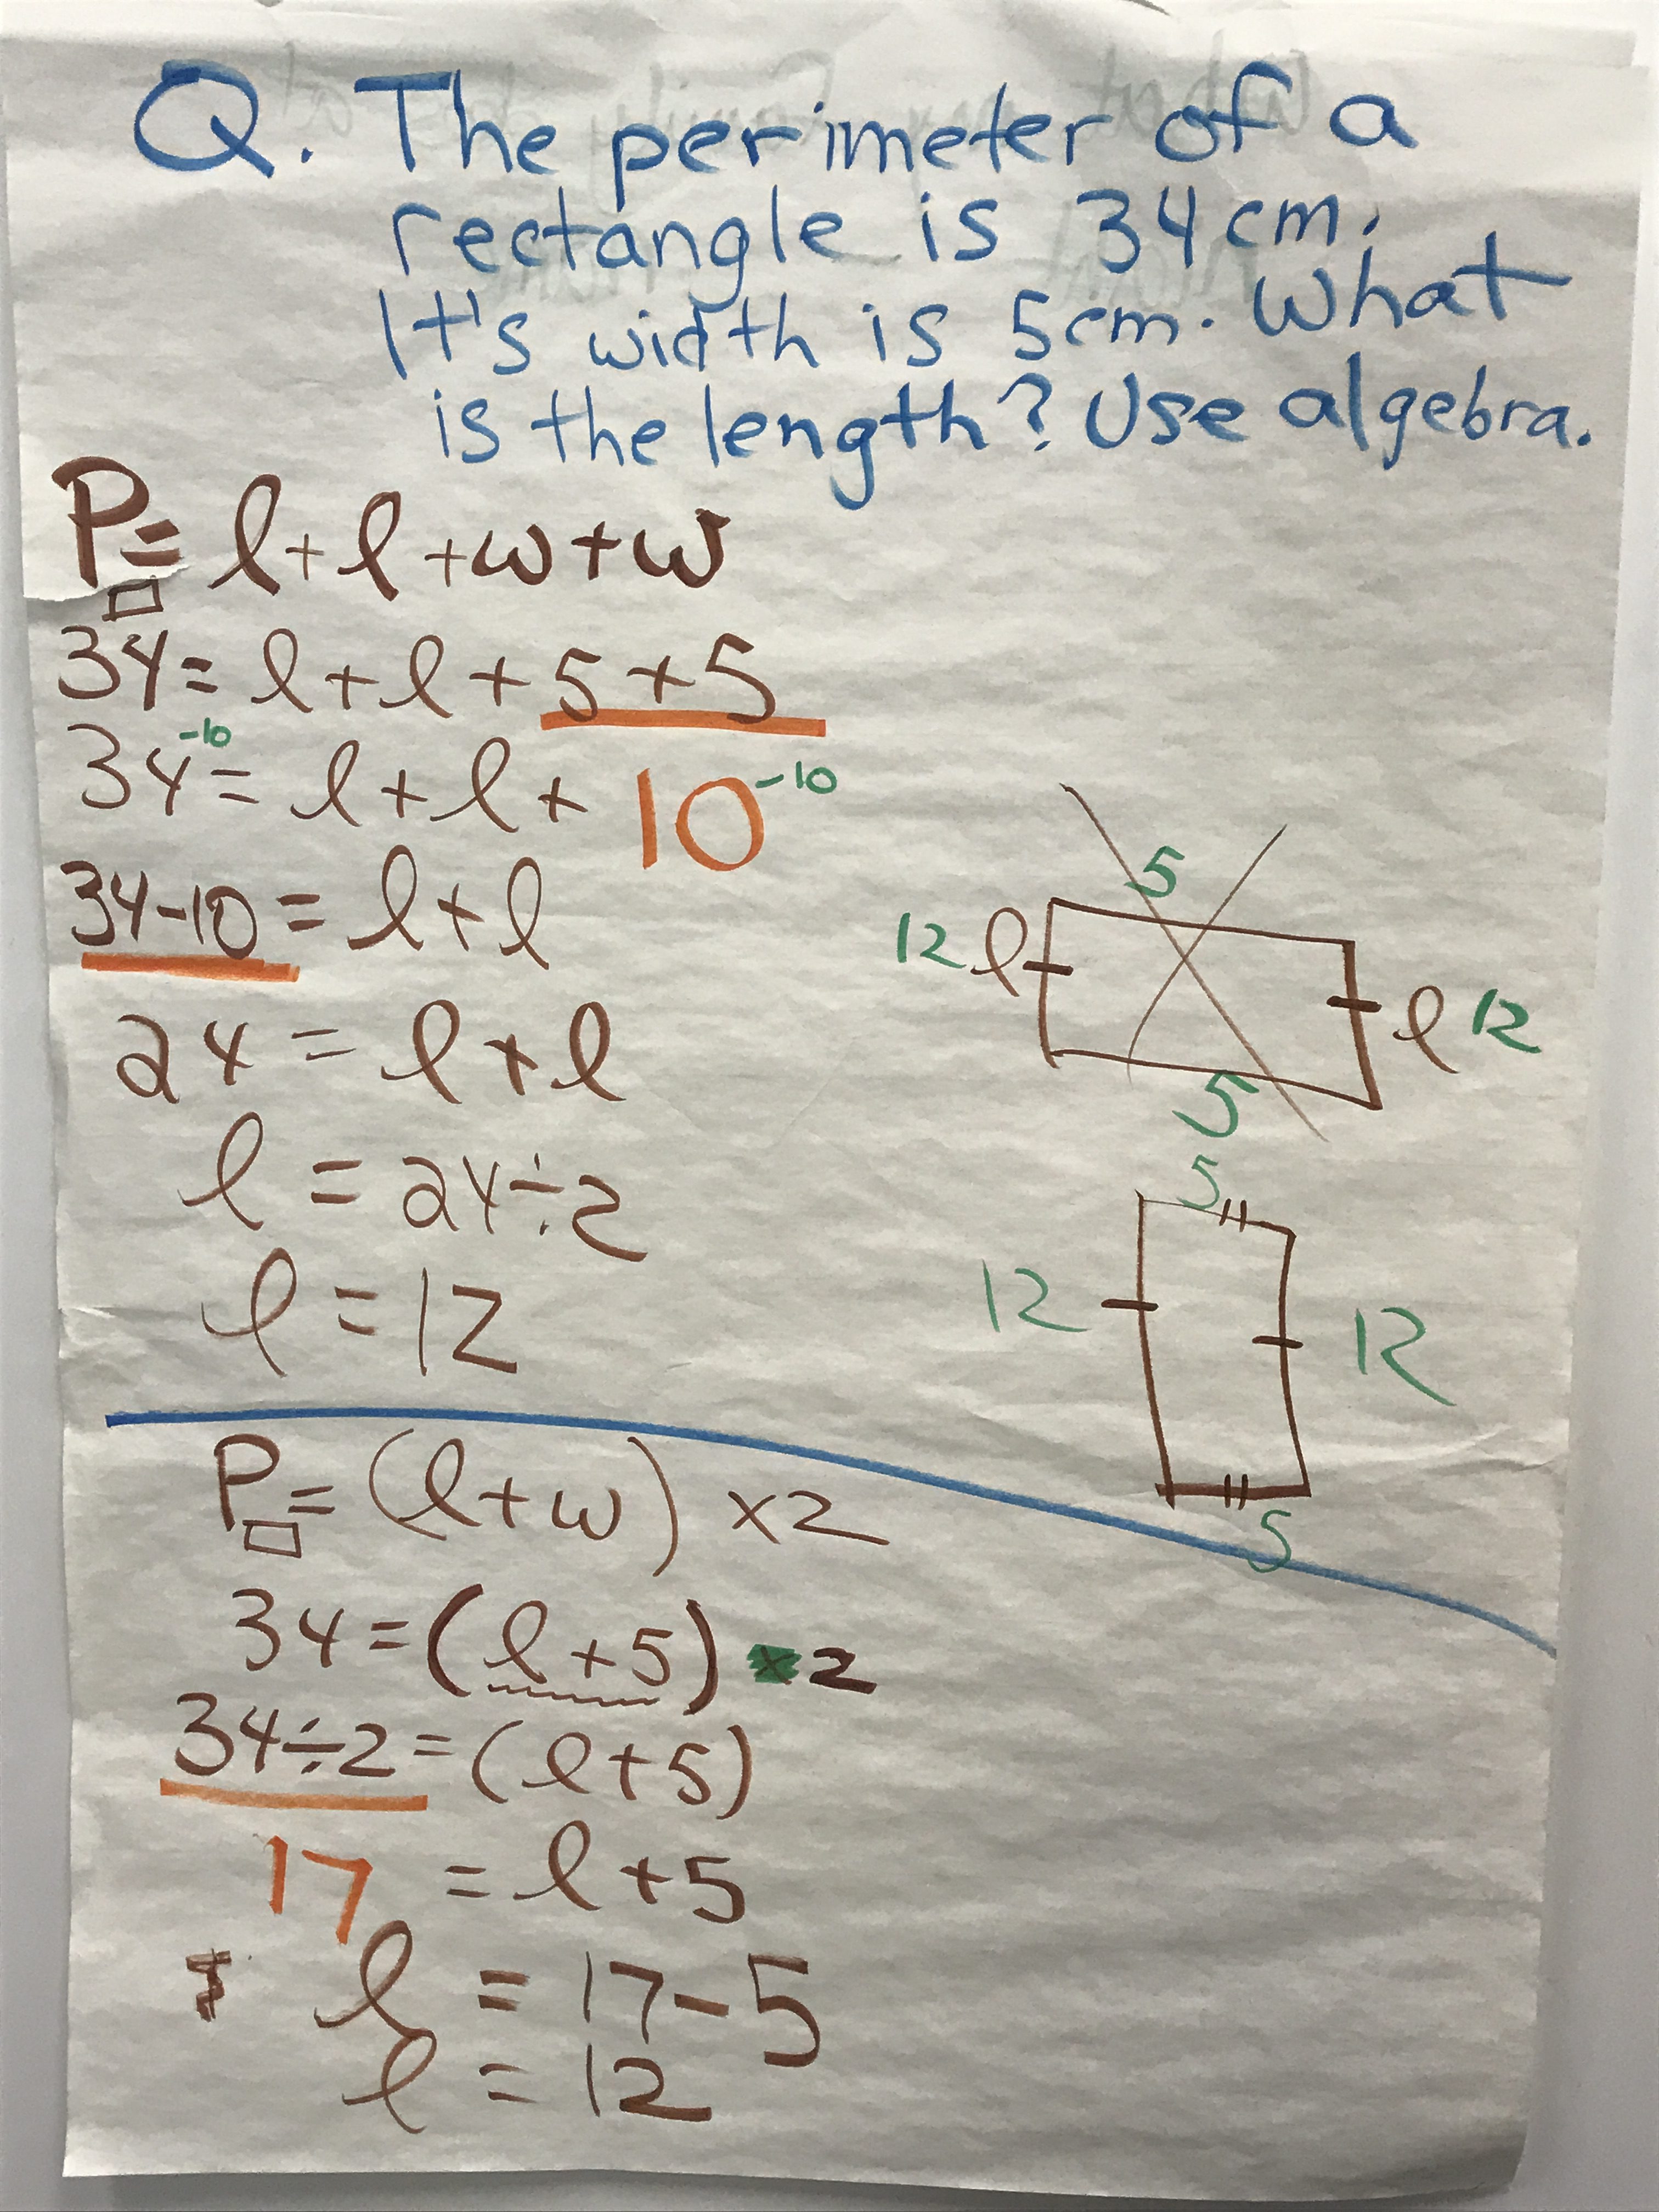 Q. The perimeter of a
rectangle is 34cm.
It's width is 5cm. What
is the length? Use algebra.
P▭ = l + l + w + w
34 = l + l + 5 + 5
34 -10 = l + l + 10 -10
34-10 = l + l
24 = l + l
l = 24÷2
l = 12
5
12 l
l 12
5
5
12
12
5
P▭ = (l + w) ×2
34 = (l + 5) × 2
34÷2 = (l + 5)
17 = l + 5
l = 17-5
l = 12